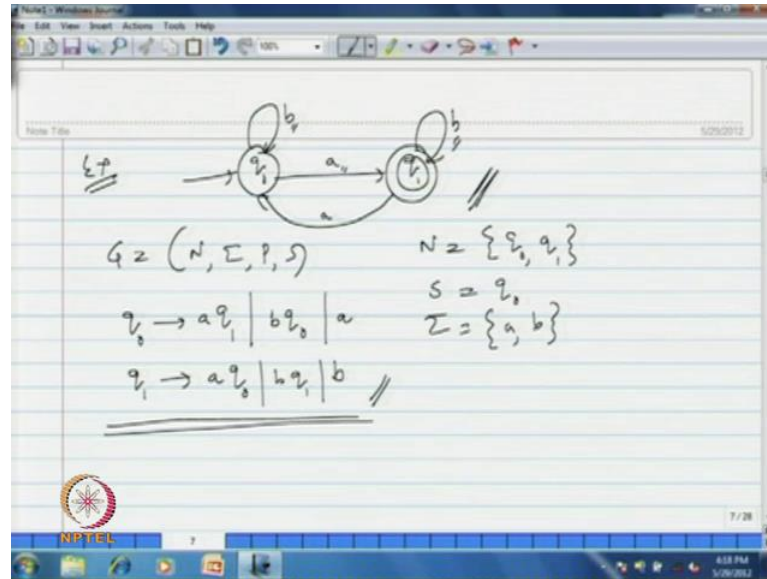 Note1 - Windows Journal
File Edit View Insert Actions Tools Help
100%
Note Title
5/29/2012
b
b
Ex
q₀
a
q₁
a
G = (N, Σ, P, S)
N = {q₀, q₁}
S = q₀
q₀ → aq₁ | bq₀ | a
Σ = {a, b}
q₁ → aq₀ | bq₁ | b
7/28
NPTEL
7
4:18 PM
5/29/2012